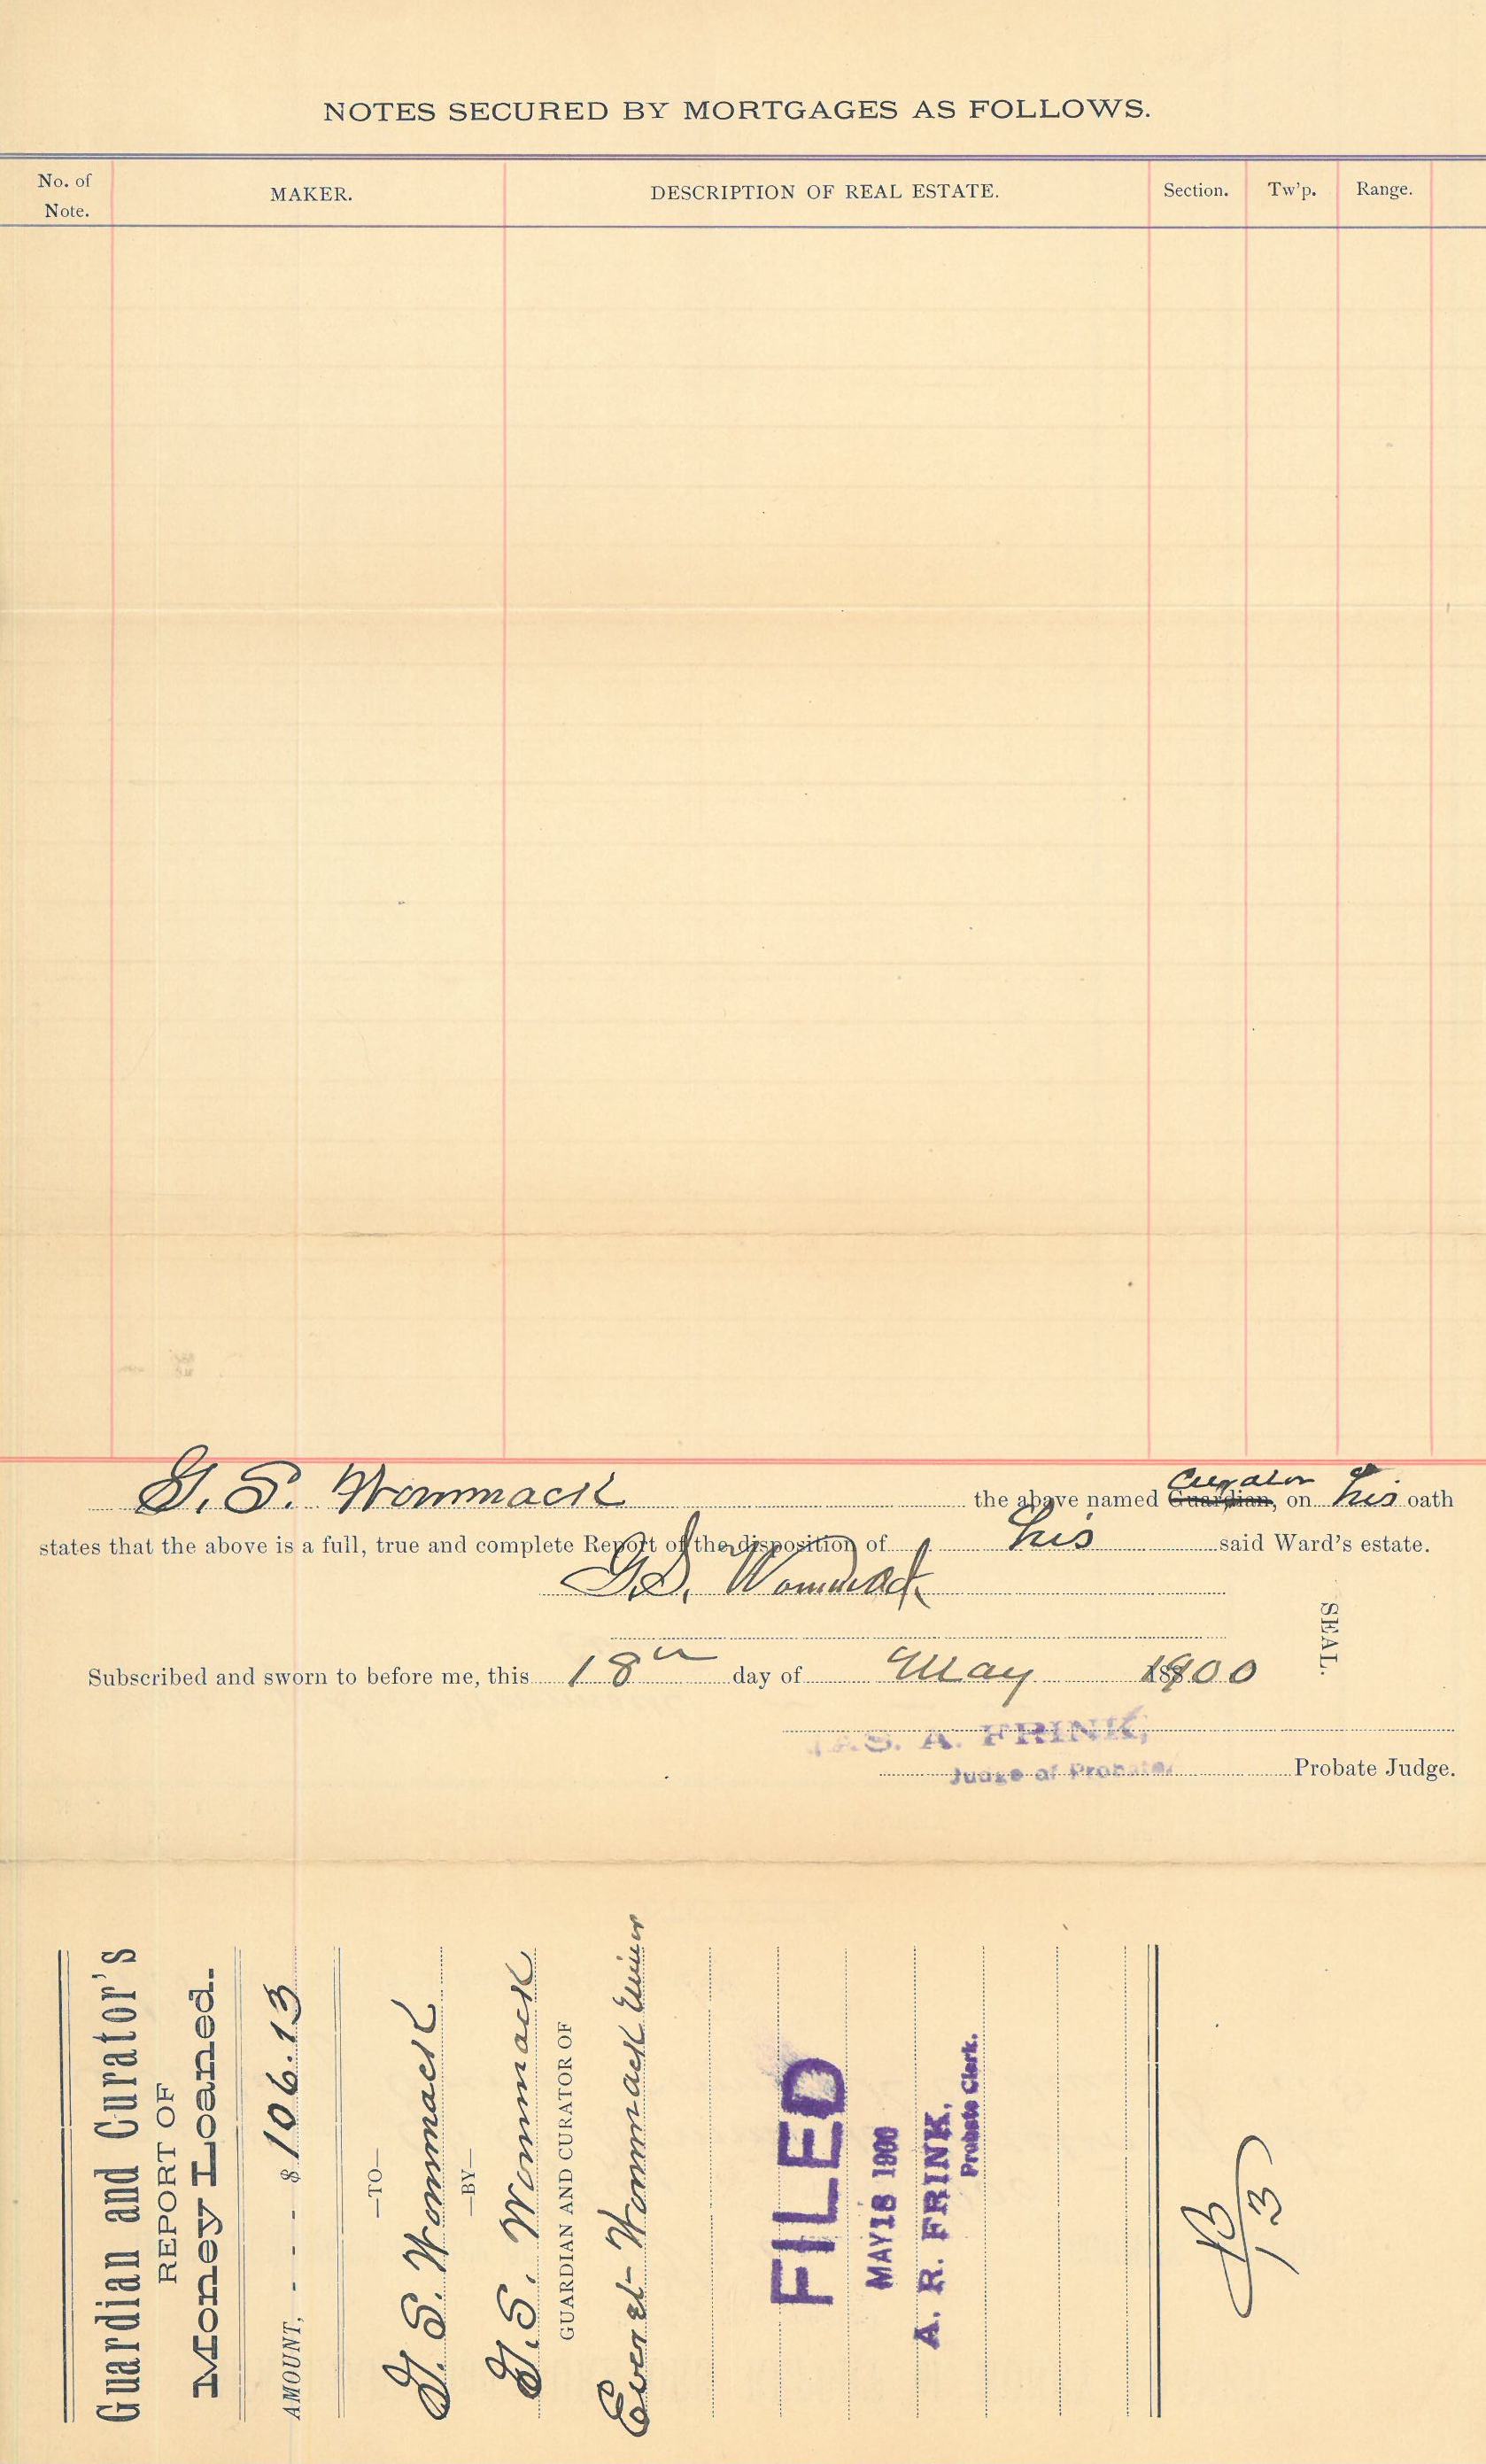 NOTES SECURED BY MORTGAGES AS FOLLOWS.
No. of Note. MAKER. DESCRIPTION OF REAL ESTATE. Section. Tw'p. Range.
G. S. Wommack the above named Guardian, Curator on his oath
states that the above is a full, true and complete Report of the disposition of his said Ward's estate.
G. S. Wommack
SEAL.
Subscribed and sworn to before me, this 18th day of May 1900
JAS. A. FRINK,
Judge of Probate Probate Judge.
Guardian and Curator's
REPORT OF
Money Loaned.
AMOUNT, - - - $ 106.13
—TO—
G. S. Wommack
—BY—
G. S. Wommack
GUARDIAN AND CURATOR OF
Everet Wommack
FILED
MAY 18 1900
A. R. FRINK,
Probate Clerk.
13